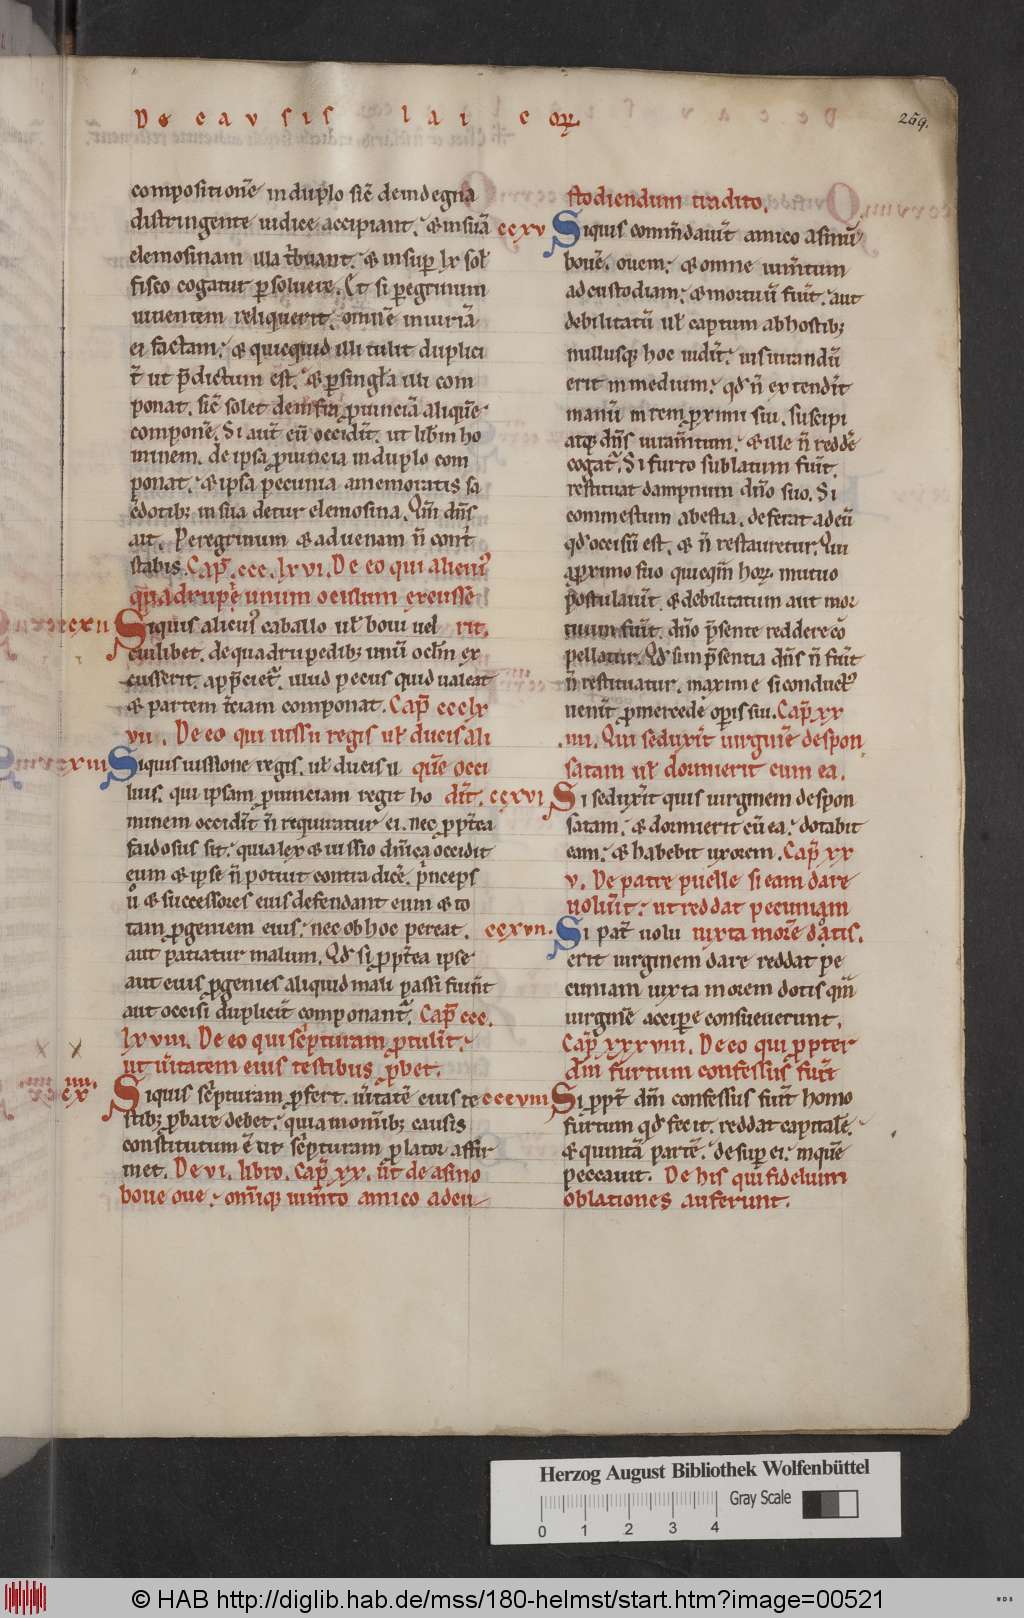 De causis laicoꝝ
269.
compositionē in duplo sic̄ deindegna
distringente iudice accipiant. & insuā
elemosinam illa tͥbuant. & insuꝑ lx sol̄
fisco cogatur ꝑsoluere. Et si ꝑegrinum
uiuentem reliquerit. omnē iniuriā
ei factam. & quicquid illi tulit duplici
t̄ ut p̄dictum est. & ꝑsingl̄a illi com
ponat. sic̄ solet de ꝓuinciā aliquē
componē. Si aut̄ eū occidit̄. ut lib̄m ho
minem. de ipsa ꝓuincia induplo com
ponat. & ipsa pecunia amemoratis sa
c̄dotibꝫ in sua detur elemosina. Qm̄ dn̄s
ait. Peregrinum & aduenam n̄ cont̄
stabis. Cap̄. ccc. lxvi. De eo qui alienꝰ
q̄drupē unum oc̄lum excussē
cxii Siquis alienꝰ caballo ul̄ boui uel rit.
cuilibet. de quadrupedibꝫ unū ocl̄m ex
cusserit. app̄cietͬ. illud pecus quid ualeat
& partem t̄ciam componat. Cap̄ ccclx
vii. De eo qui iussu regis ul̄ ducis ali
cxiii Siquis iussione regis. ul̄ ducis il quē occi
lius. qui ipsam ꝓuinciam regit ho dit̄.
minem occidit̄ n̄ requiratur ei. nec ꝓpt̄ea
faidosus sit. quia lex & iussio dn̄ica occidit
eum & ipse n̄ potuit contradicē. p̄nceps
ů & successores eius defendant eum & to
tam ꝓgeniem eius. nec ob hoc pereat.
aut patiatur malum. Qd̄ si ꝓpt̄ea ipse
aut eius ꝓgenies aliquid mali passi fiūnt
aut occisi duplicit̄ componantͬ. Cap̄ ccc.
lxviii. De eo qui sc̄pturam ꝓtulit̄.
ut ūitatem eius testibus ꝓbet.
cx iiii. Siquis sc̄pturam ꝓfert. ūitatē eius te
stibꝫ ꝓbare debet. quia momībꝫ causis
constitutum ē ut sc̄pturam ꝓlator affir
met. De vi. libro. cap̄ xx. ūt de asino
boue oue. omīqꝫ iuīto amico adcu
stodiendum tradito.
ccxv Siquis com̄ndauit̄ amico asinū
bouē. ouem. & omne iūmtum
ad custodiam. & mortuū fiūt. aut
debilitatū ul̄ captum ab hostibꝫ
nullusqꝫ hoc uidit̄. iusiurandū
erit in medium. qd̄ n̄ extendit̄
manū in rem ꝓximi sui. suscipi
atqꝫ dn̄s iuram̄tum. & ille n̄ reddē
cogatͬ. Si furto sublatum fūit.
restituat dampnum dn̄o suo. Si
commestum abestia. deferat adeū
qd̄ occisū est. & n̄ restauretur. Qui
aꝓximo suo quicqm̄ hoꝝ mutuo
postulauit̄. & debilitatum aut mor
tuum fūit. dn̄o p̄sente reddere cō
pellatur. Qd̄ si inp̄sentia dn̄s n̄ fūit
n̄ restituatur. maxime si conductꝰ
uenit̄ ꝓmercede oꝑis sui. Cap̄ xx
iiii. Qui seduxit̄ uirginē despon
satam ul̄ dormierit cum ea.
ccxvi Si seduxit̄ quis uirginem despon
satam. & dormierit cū ea. dotabit
eam. & habebit uxorem. Cap̄ xx
v. De patre puelle si eam dare
uolūit. ut reddat pecuniam
ccxvii. Si pat̄ nolu iuxta morē dotis.
erit uirginem dare reddat pe
cuniam iuxta morem dotis qm̄
uirginē acciꝑe consueuerunt.
Cap̄ xxxviii. De eo qui ꝓpter
dm̄ furtum confessus fūit
ccxviii Si ꝓpt̄ dm̄ confessus fūit homo
furtum qd̄ fecit. reddat capitalē.
& quintā partē. desuꝑ ei. inquē
peccauit. De his qui fidelium
oblationes auferunt.
Herzog August Bibliothek Wolfenbüttel
Gray Scale
0 1 2 3 4
© HAB http://diglib.hab.de/mss/180-helmst/start.htm?image=00521